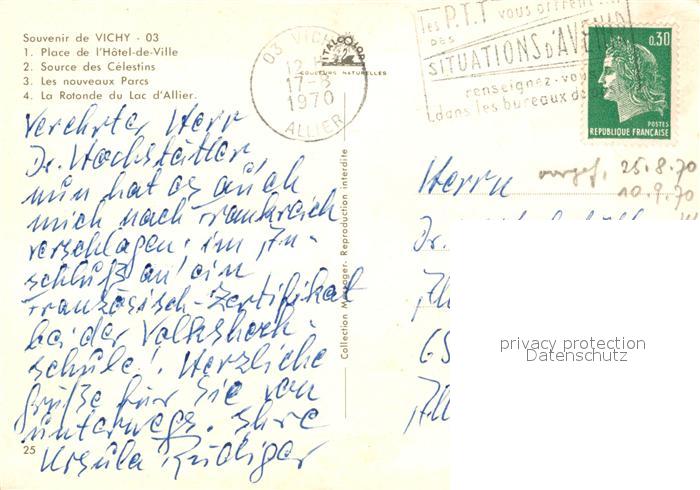 Souvenir de VICHY - 03
1. Place de l'Hôtel-de-Ville
2. Source des Célestins
3. Les nouveaux Parcs
4. La Rotonde du Lac d'Allier.
Verehrter Herr
Dr. Hochstätter,
nun hat es auch
mich nach Frankreich
verschlagen: im An-
schluß an ein
Französisch-Zertifikat
bei der Volkshoch-
schule! Herzliche
Grüße für Sie von
unterwegs. Ihre
Ursula Rüdiger
25
Collection Messager. Reproduction interdite
03 VICHY
12 H
17-8
1970
ALLIER
VITALCOLOR
COULEURS NATURELLES
les P.T.T vous offrent
des
SITUATIONS D'AVENIR
renseignez-vous
dans les bureaux de
0,30
POSTES
REPUBLIQUE FRANÇAISE
Herrn
25.8.70
10.9.70
Dr.
privacy protection
Datenschutz